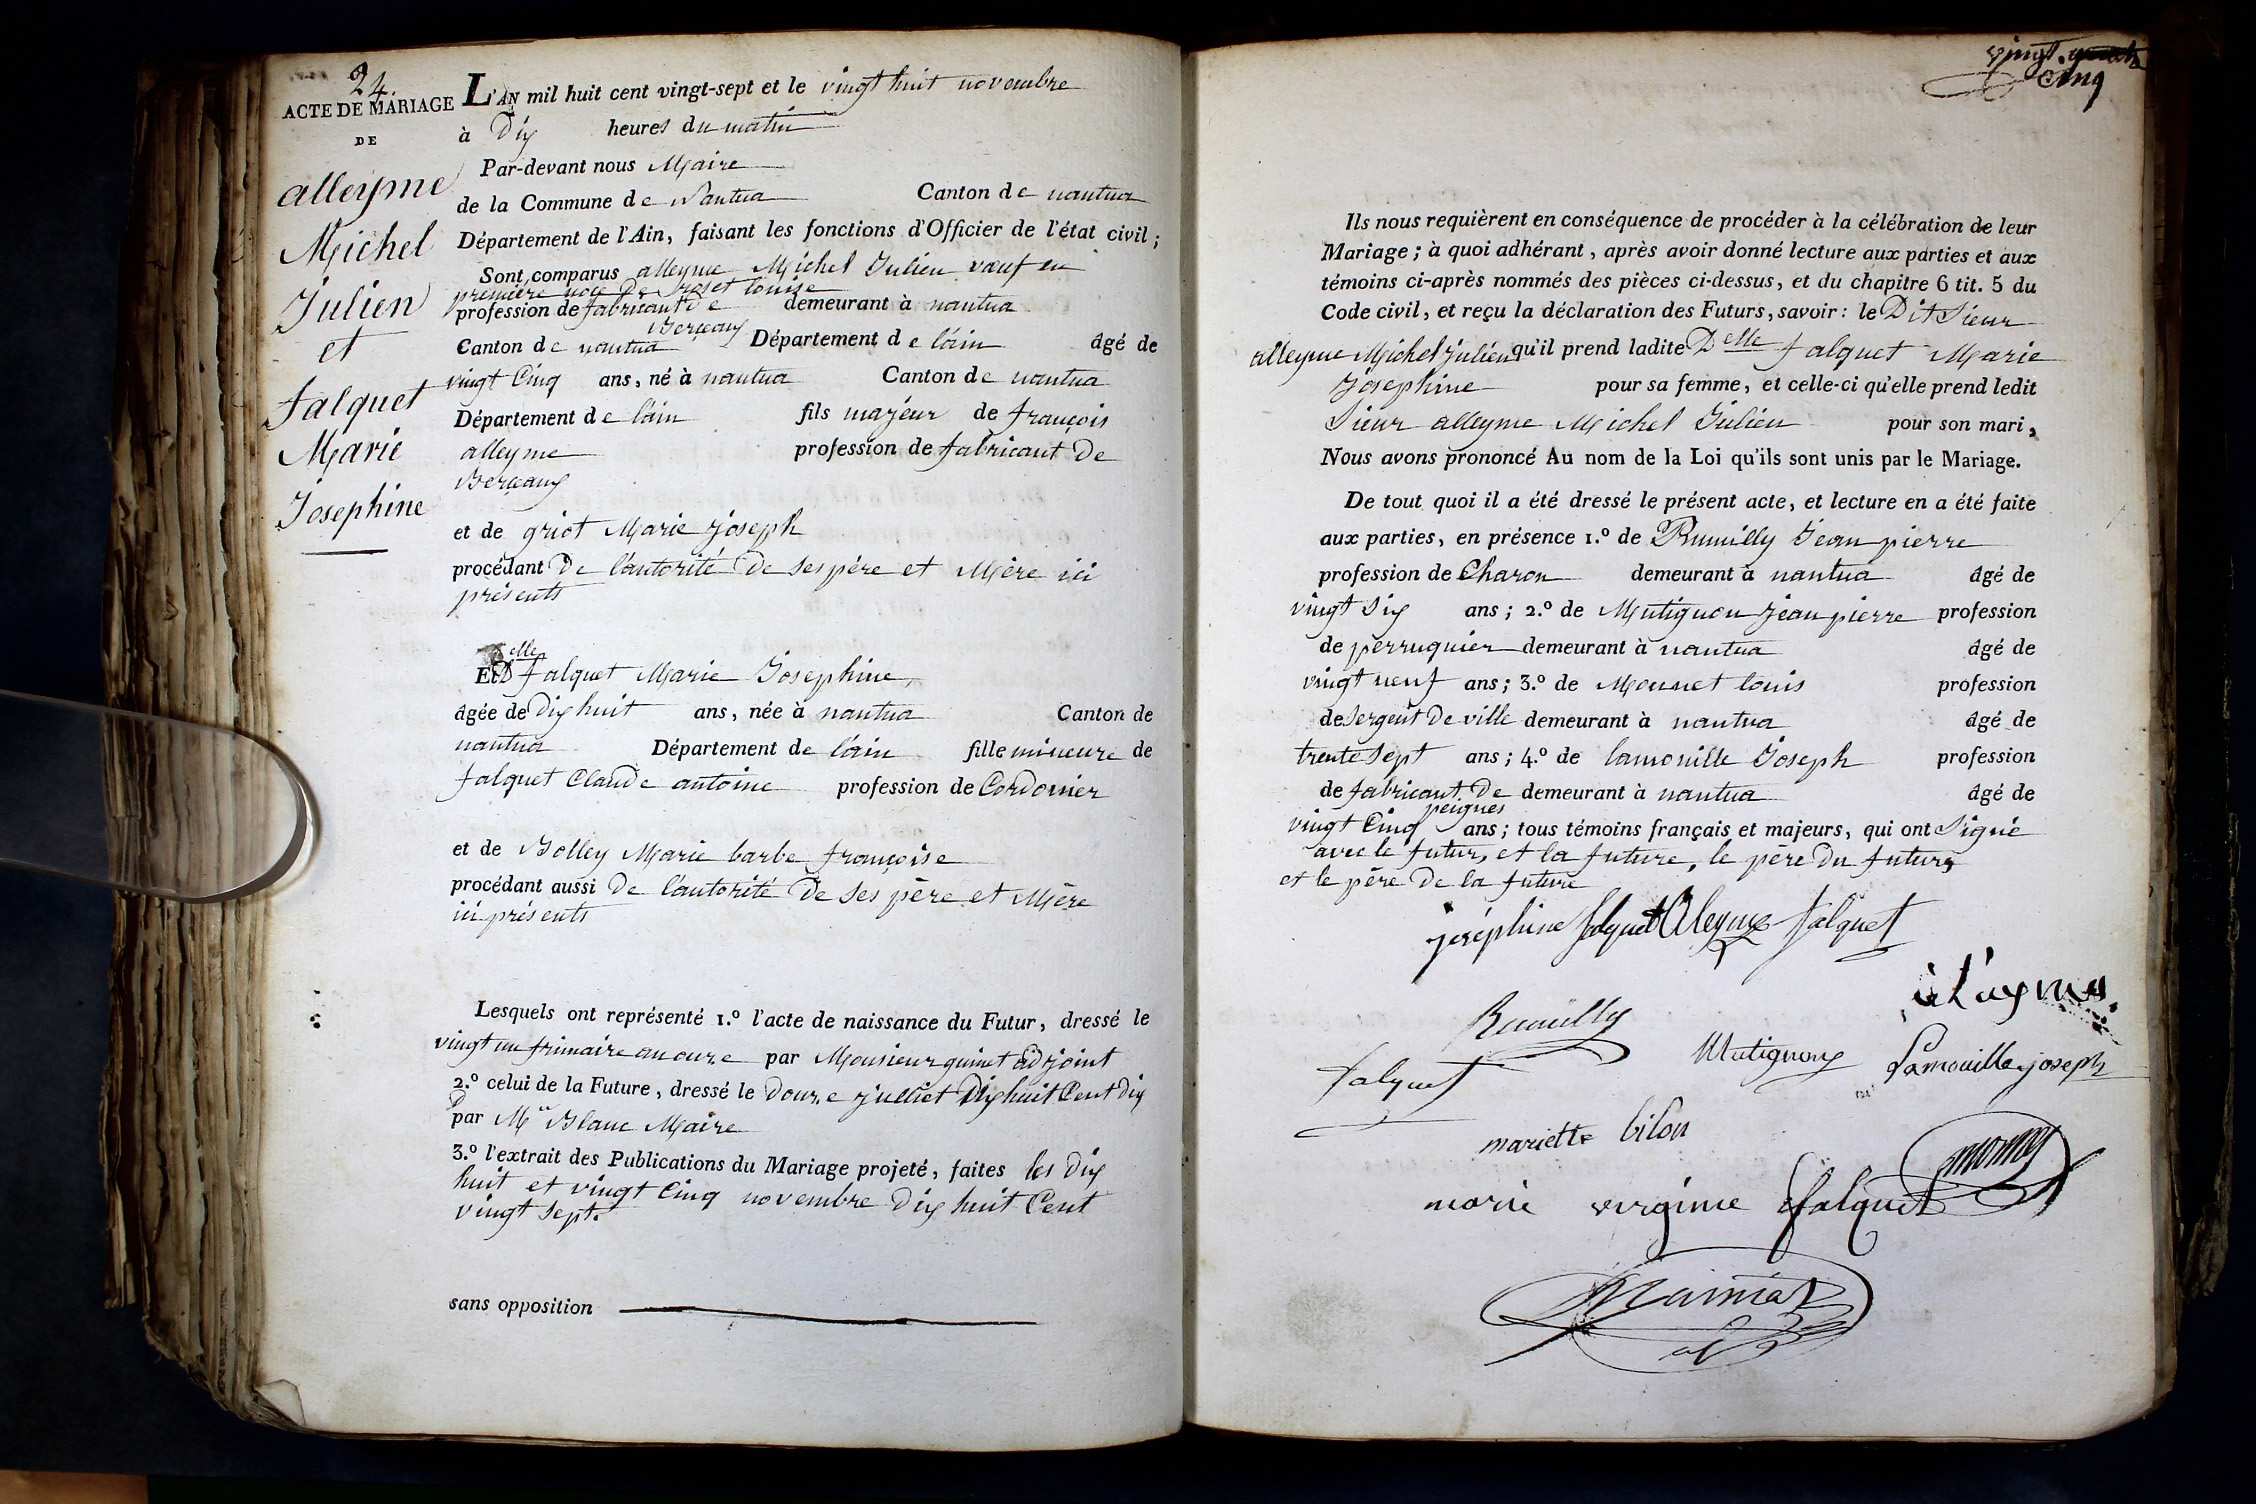 24.
ACTE DE MARIAGE
DE
alleyme
Michel
Julien
et
falquet
Marie
Josephine
L'AN mil huit cent vingt-sept et le vingt huit novembre
à Dix heures du matin
Par-devant nous Maire
de la Commune de Nantua Canton de nantua
Département de l'Ain, faisant les fonctions d'Officier de l'état civil ;
Sont comparus alleyme Michel Julien vœuf en
première noce de Joset louise
profession de fabricant de demeurant à nantua
Berçeaux
Canton de nantua Département de l'ain âgé de
vingt Cinq ans, né à nantua Canton de nantua
Département de l'ain fils majeur de françois
alleyme profession de fabricant De
Berçeaux
et de griot Marie joseph
procédant De l'autorité De ses père et Mère ici
présents
Et Delle falquet Marie Josephine,
âgée de Dix huit ans, née à nantua Canton de
nantua Département de l'ain fille mineure de
falquet Claude antoine profession de Cordonier
et de Bolley Marie barbe françoise
procédant aussi De l'autorité De ses père et Mère
ici présents
Lesquels ont représenté 1.º l'acte de naissance du Futur, dressé le
vingt un frimaire an onze par Monsieur guinet adjoint
2.º celui de la Future, dressé le Douze juillet Dix huit Cent dix
par Mr Blanc Maire
3.º l'extrait des Publications du Mariage projeté, faites les Dix
huit et vingt Cinq novembre Dix huit Cent
vingt sept.
sans opposition
vingt. quatre
Cinq
Ils nous requièrent en conséquence de procéder à la célébration de leur
Mariage ; à quoi adhérant, après avoir donné lecture aux parties et aux
témoins ci-après nommés des pièces ci-dessus, et du chapitre 6 tit. 5 du
Code civil, et reçu la déclaration des Futurs, savoir : le Dit Sieur
alleyme Michel julien qu'il prend ladite Delle falquet Marie
Josephine pour sa femme, et celle-ci qu'elle prend ledit
Sieur alleyme Michel Julien pour son mari,
Nous avons prononcé Au nom de la Loi qu'ils sont unis par le Mariage.
De tout quoi il a été dressé le présent acte, et lecture en a été faite
aux parties, en présence 1.º de Rumilly Jean pierre
profession de Charon demeurant à nantua âgé de
vingt Six ans ; 2.º de Mutignon jean pierre profession
de perruquier demeurant à nantua âgé de
vingt neuf ans ; 3.º de Monnet louis profession
de Sergent De ville demeurant à nantua âgé de
trente Sept ans ; 4.º de lamouille Joseph profession
de fabricant De demeurant à nantua âgé de
peignes
vingt Cinq ans ; tous témoins français et majeurs, qui ont Signé
avec le futur, et la future, le père Du futur,
et le père De la future
joséphine falquet Aleyme falquet
aleyme
Rumilly
falquet Mutignon Lamouille joseph
mariette bilon
monnet
marie virginie falquet